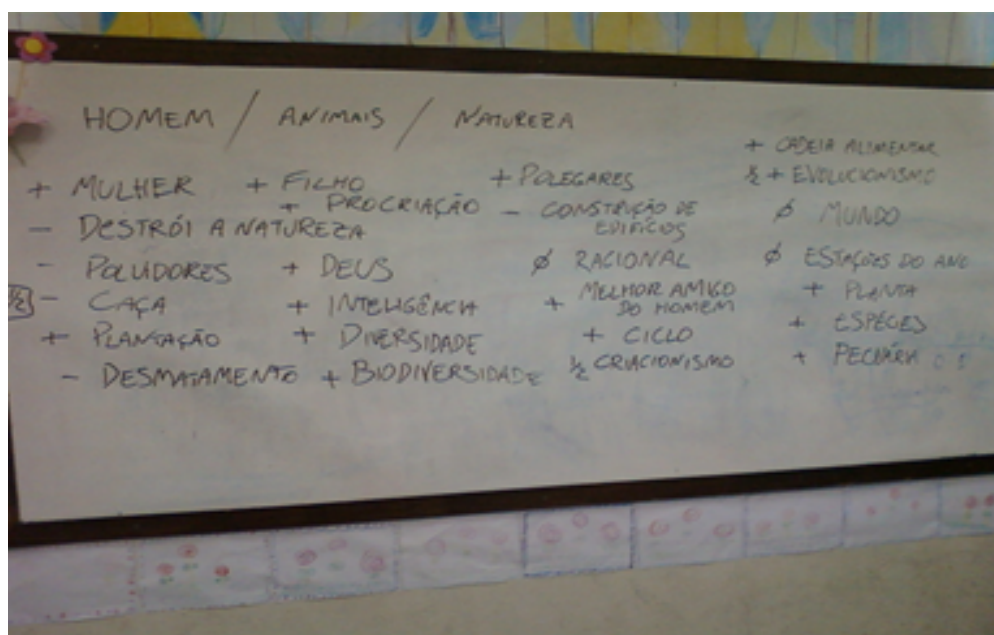 HOMEM / ANIMAIS / NATUREZA
+ MULHER
- DESTRÓI A NATUREZA
- POLUIDORES
½ - CAÇA
+ PLANTAÇÃO
- DESMATAMENTO
+ FILHO
+ PROCRIAÇÃO
+ DEUS
+ INTELIGÊNCIA
+ DIVERSIDADE
+ BIODIVERSIDADE
+ POLEGARES
- CONSTRUÇÃO DE
EDIFÍCIOS
ø RACIONAL
+ MELHOR AMIGO
DO HOMEM
+ CICLO
½ CRIACIONISMO
+ CADEIA ALIMENTAR
½ + EVOLUCIONISMO
ø MUNDO
ø ESTAÇÕES DO ANO
+ PLANTA
+ ESPÉCIES
+ PECUÁRIA